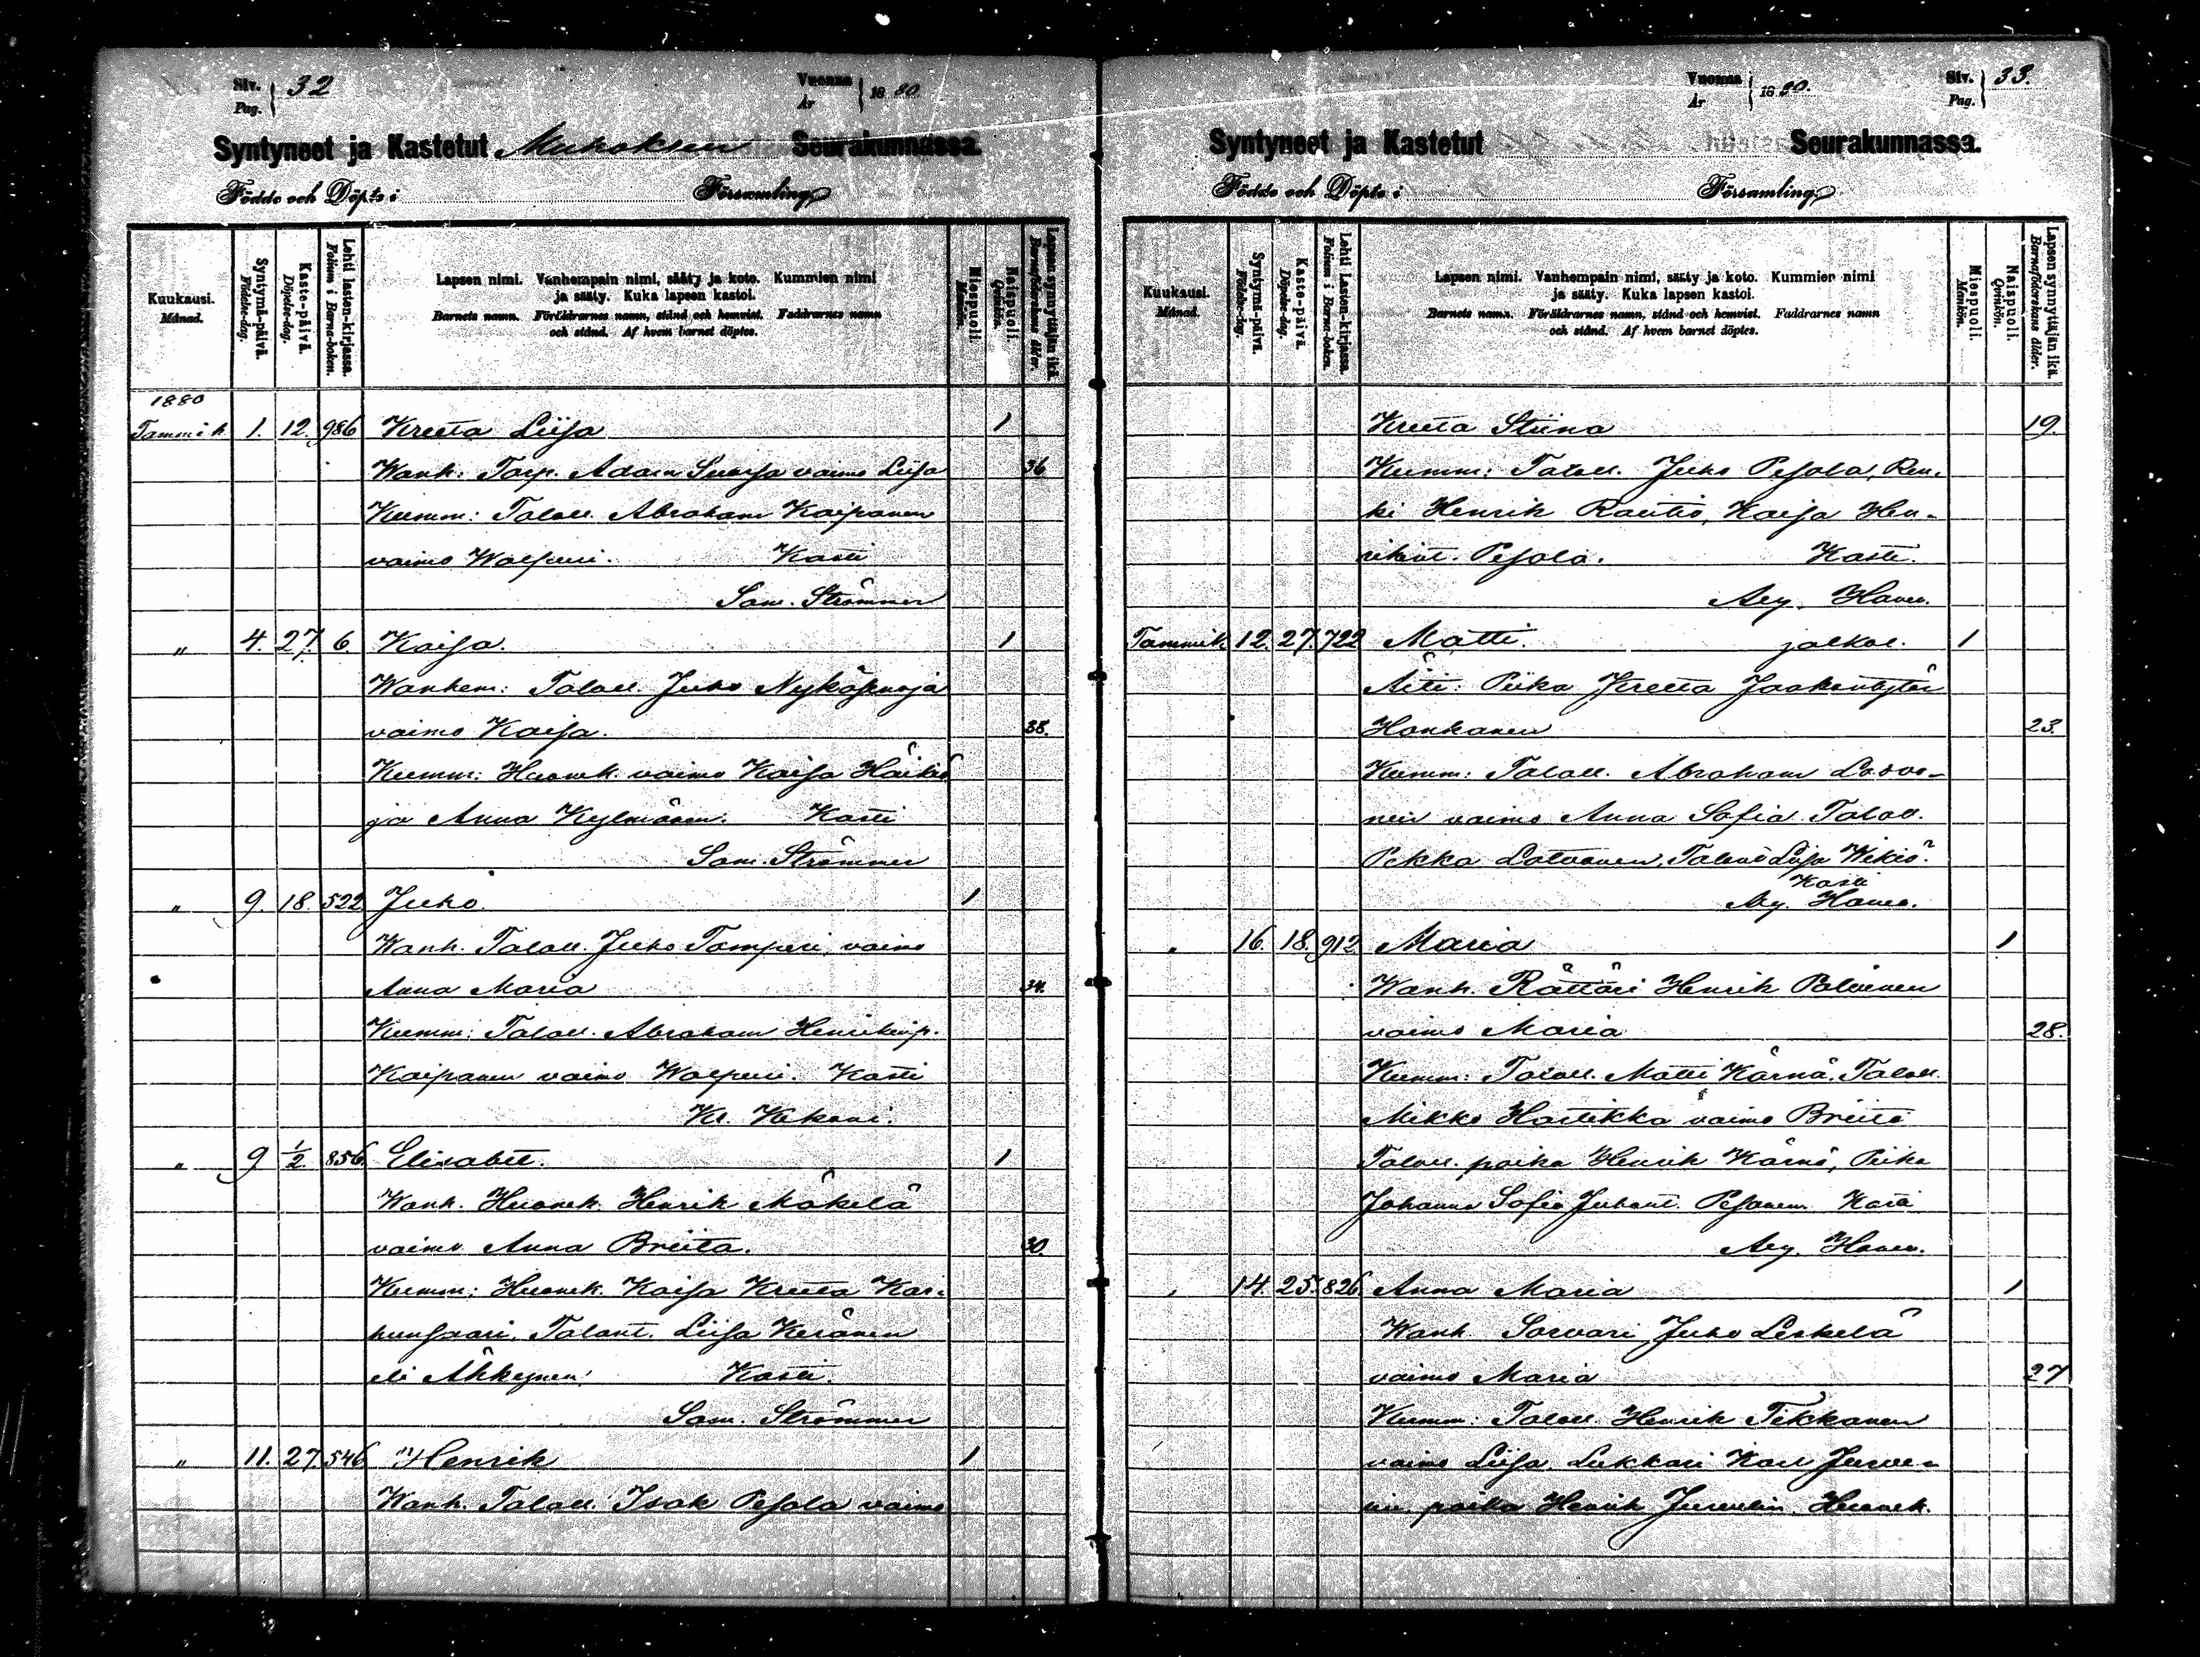 Siv. Pag. 32
Vuonna År 1880.
Syntyneet ja Kastetut Muhoksen Seurakunnassa.
Födde och Döpte i Församling
Kuukausi. Månad.
Syntymä-päivä. Födelse-dag.
Kaste-päivä. Döpelse-dag.
Lehti lasten-kirjassa. Folium i Barna-boken.
Lapsen nimi. Vanhempain nimi, sääty ja koto. Kummien nimi
ja sääty. Kuka lapsen kastoi.
Barnets namn. Föräldrarnes namn, stånd och hemvist. Faddrarnes namn
och stånd. Af hvem barnet döptes.
Miespuoli. Mankön.
Naispuoli. Qvinkön.
Lapsen synnyttäjän ikä. Barnaföderskans ålder.
1880
Tammik. 1. 12. 986 Kreeta Liisa 1
Wanh: Torp. Adam Suorsa vaimo Liisa 36.
Kumm: Taloll. Abraham Kaipanen
vaimo Walpuri. Kasti
Sam. Strömmer
" 4. 27. 6. Kaisa. 1
Wanhem: Taloll. Juho Nykäsenoja
vaimo Kaisa. 38.
Kumm: Huonek. vaimo Kaisa Häikiö
ja Anna Kylmänen. Kasti
Sam. Strömmer
" 9. 18. 522 Juho. 1
Wanh. Taloll. Juho Tomperi, vaimo
Anna Maria 34.
Kumm: Taloll. Abraham Henrikinp.
Kaipanen vaimo Walpuri. Kasti
Kl. Kekoni.
" 9 1/2. 856. Elisabet. 1
Wanh. Huonek. Henrik Mäkelä
vaimo Anna Briita. 30.
Kumm: Huonek. Kaisa Kreeta Kar-
hunsaari, Talont. Liisa Keränen
eli Ähkynen. Kasti.
Sam. Strömmer
" 11. 27. 546 Henrik 1
Wanh. Taloll. Isak Pesola vaimo
Vuonna År 1880.
Siv. Pag. 33.
Syntyneet ja Kastetut Seurakunnassa.
Födde och Döpte i Församling.
Kuukausi. Månad.
Syntymä-päivä. Födelse-dag.
Kaste-päivä. Döpelse-dag.
Lehti Lasten-kirjassa. Folium i Barna-boken.
Lapsen nimi. Vanhempain nimi, sääty ja koto. Kummien nimi
ja sääty. Kuka lapsen kastoi.
Barnets namn. Föräldrarnes namn, stånd och hemvist. Faddrarnes namn
och stånd. Af hvem barnet döptes.
Miespuoli. Mankön.
Naispuoli. Qvinkön.
Lapsen synnyttäjän ikä. Barnaföderskans ålder.
Kreeta Stiina 19.
Kumm: Taloll. Juho Pesola, Ren-
ki Henrik Rautio, Kaisa Hen-
rikint. Pesola. Kasti.
Hanen.
Tammik. 12. 27. 722 Matti. jalkol. 1
Äiti: Piika Kreeta Jaakontytär
Honkanen 23.
Kumm: Taloll. Abraham
vaimo Anna Sofia. Taloll.
Pekka Latvanen, Liisa Wikiö.
Kasti
Hanen.
" 16. 18. 912 Maria 1
Wanh. Rättäri Henrik
vaimo Maria 28.
Kumm: Taloll. Matti Kärnä. Taloll.
Mikko Hartikka vaimo Briita
Taloll. poika Henrik Kärnä, Piika
Johanna Sofia Juhont. Pesonen. Kasti
Hanen.
" 14. 25. 826. Anna Maria 1
Wanh. Sorvari Juho Leskelä
vaimo Maria 27
Kumm: Taloll. Henrik Tikkanen
vaimo Liisa. Lukkari Karl
poika Henrik Huonek.